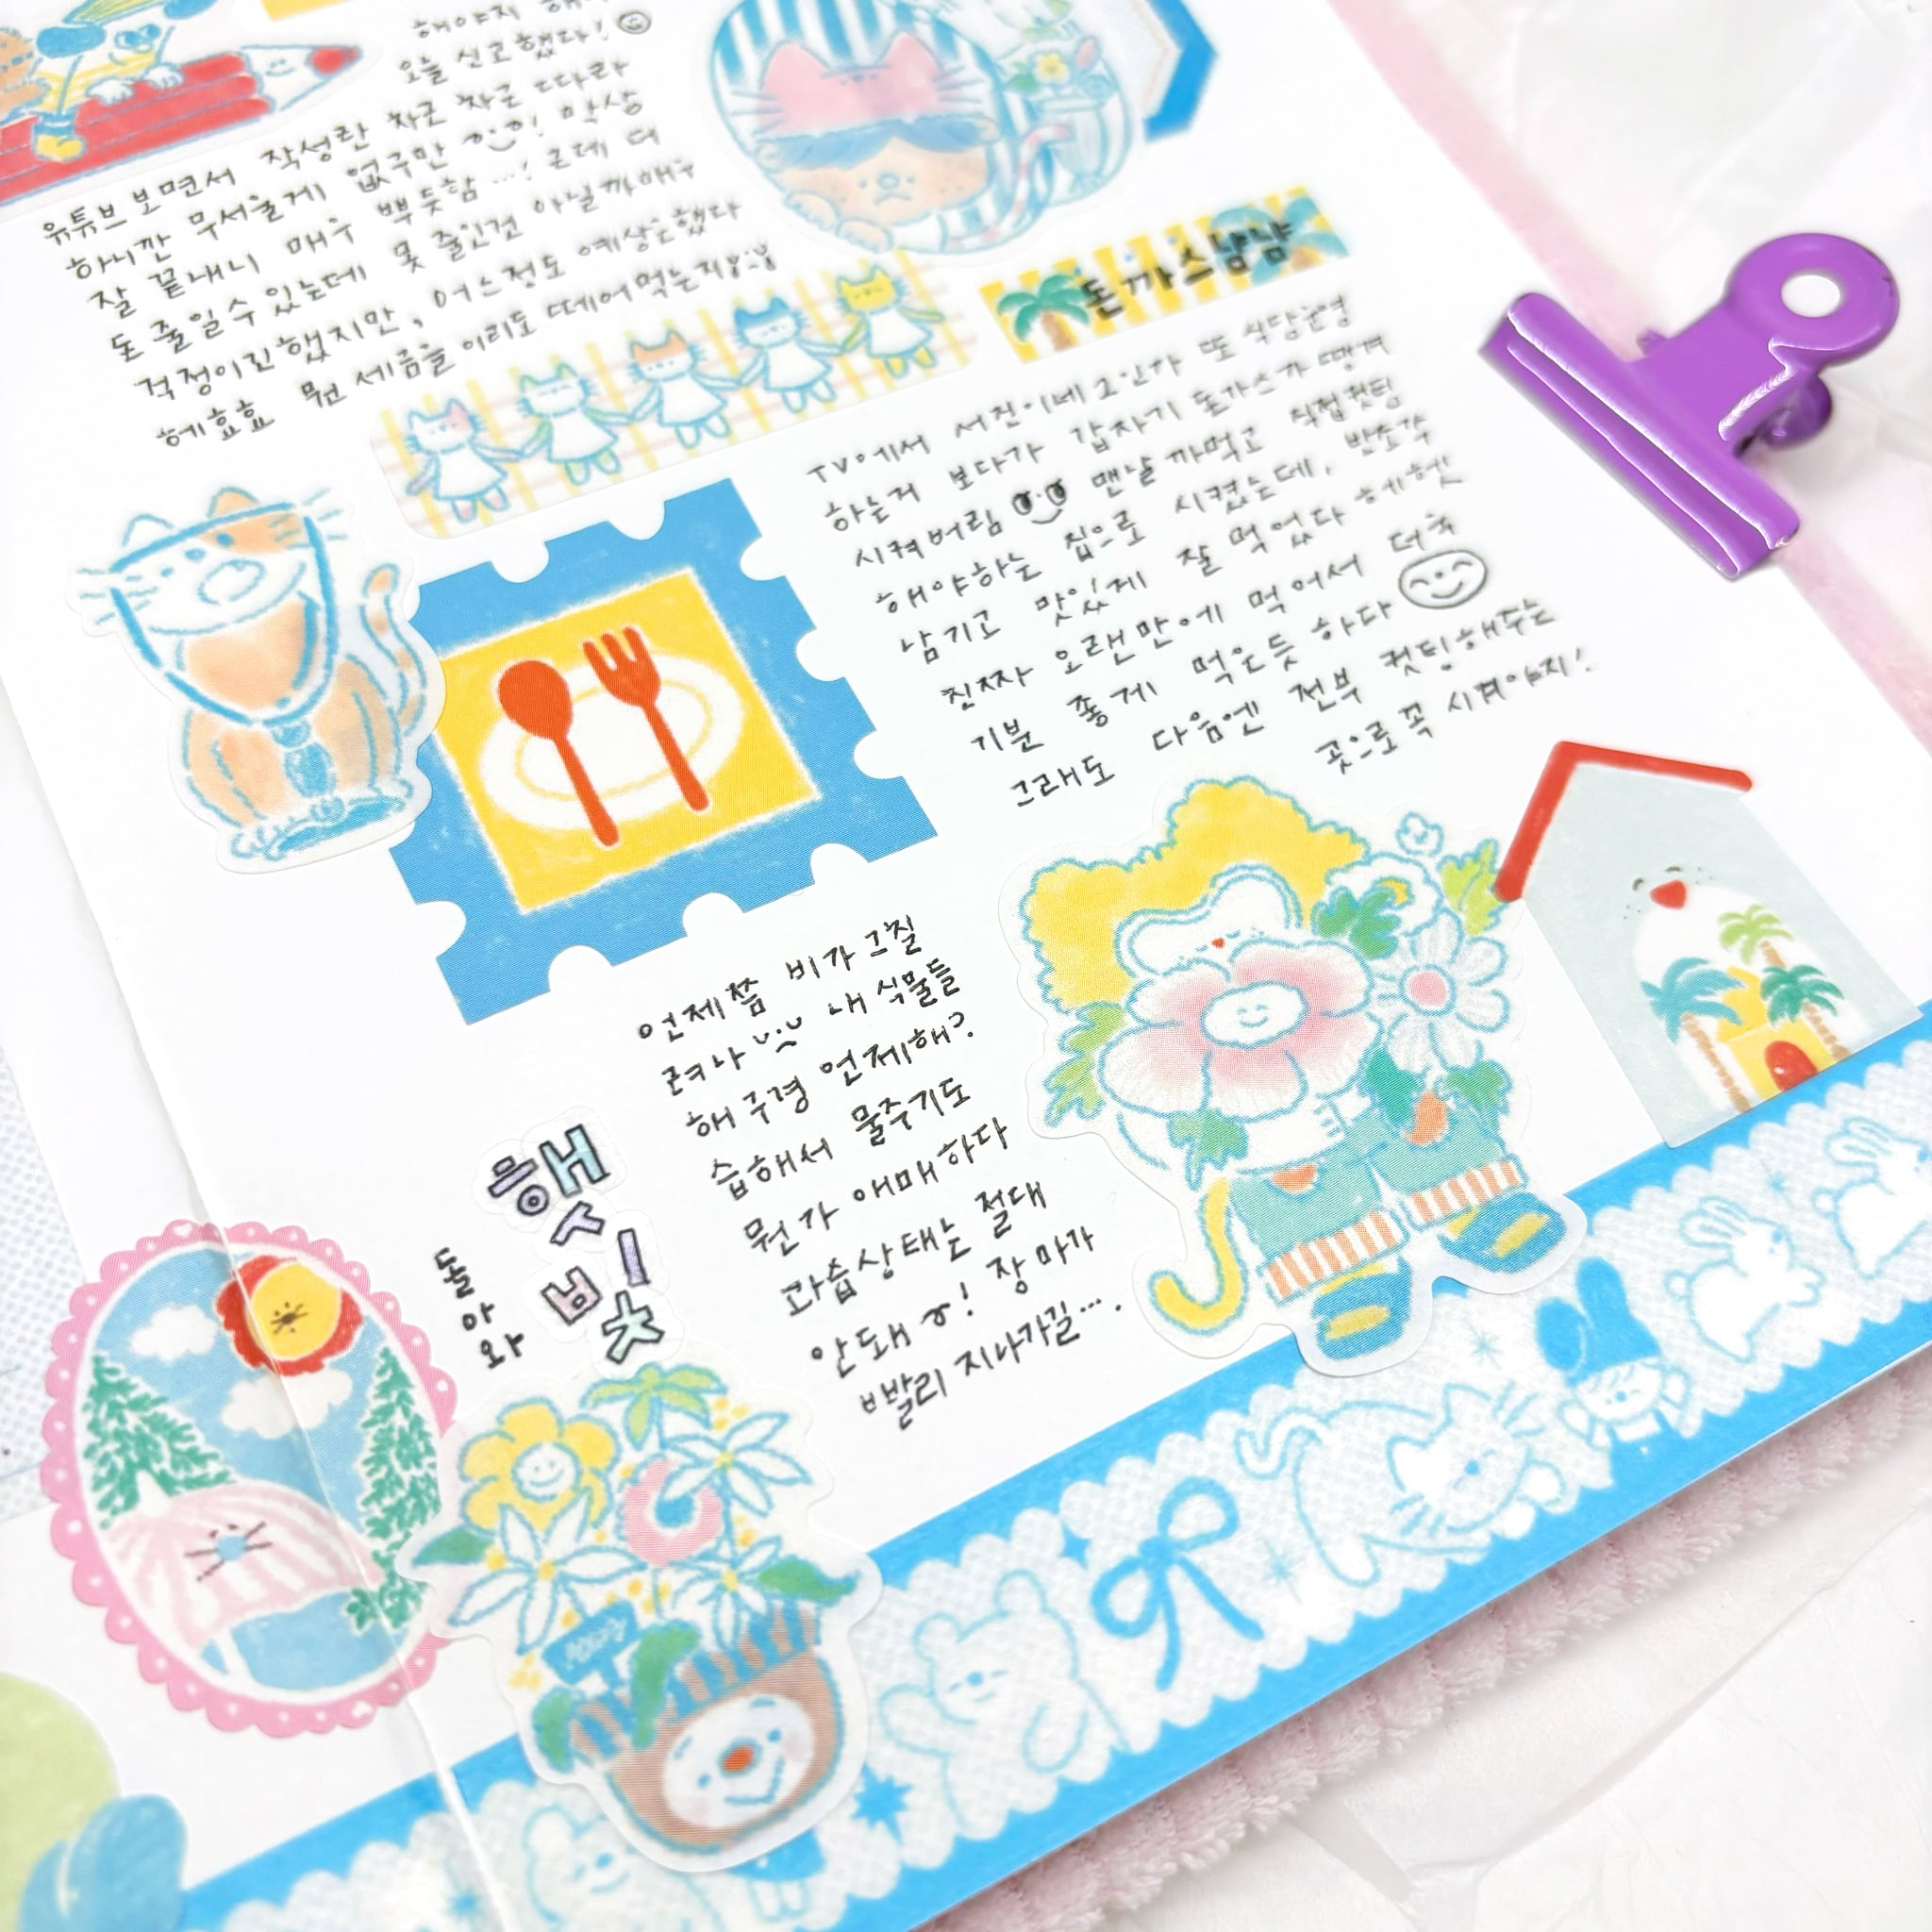 해야지 해
오늘 신고했다!
유튜브 보면서 작성란 차근 차근 따라
하니깐 무서울게 없구만 ! 막상
잘 끝내니 매우 뿌듯함 …! 근데 더
돈 줄일수 있는데 못 줄인건 아닐까해서
걱정이긴했지만, 어느정도 예상은했다
헤효효 뭔 세금을 이리도 떼어먹는지
돈까스냠냠
TV에서 서진이네 2인가 또 식당운영
하는거 보다가 갑자기 돈가스가 땡겨
시켜버림 맨날 까먹고 직접컷팅
해야하는 집으로 시켰는데, 반조각
남기고 맛있게 잘 먹었다 헤헷
진짜 오랜만에 먹어서 더욱
기분 좋게 먹은듯 하다
그래도 다음엔 전부 컷팅해주는
곳으로 꼭 시켜야지!
언제쯤 비가 그칠
려나 내 식물들
해 구경 언제해?
습해서 물주기도
뭔가 애매하다
과습상태는 절대
안돼 ! 장마가
빨리 지나가길….
햇빛
돌아와